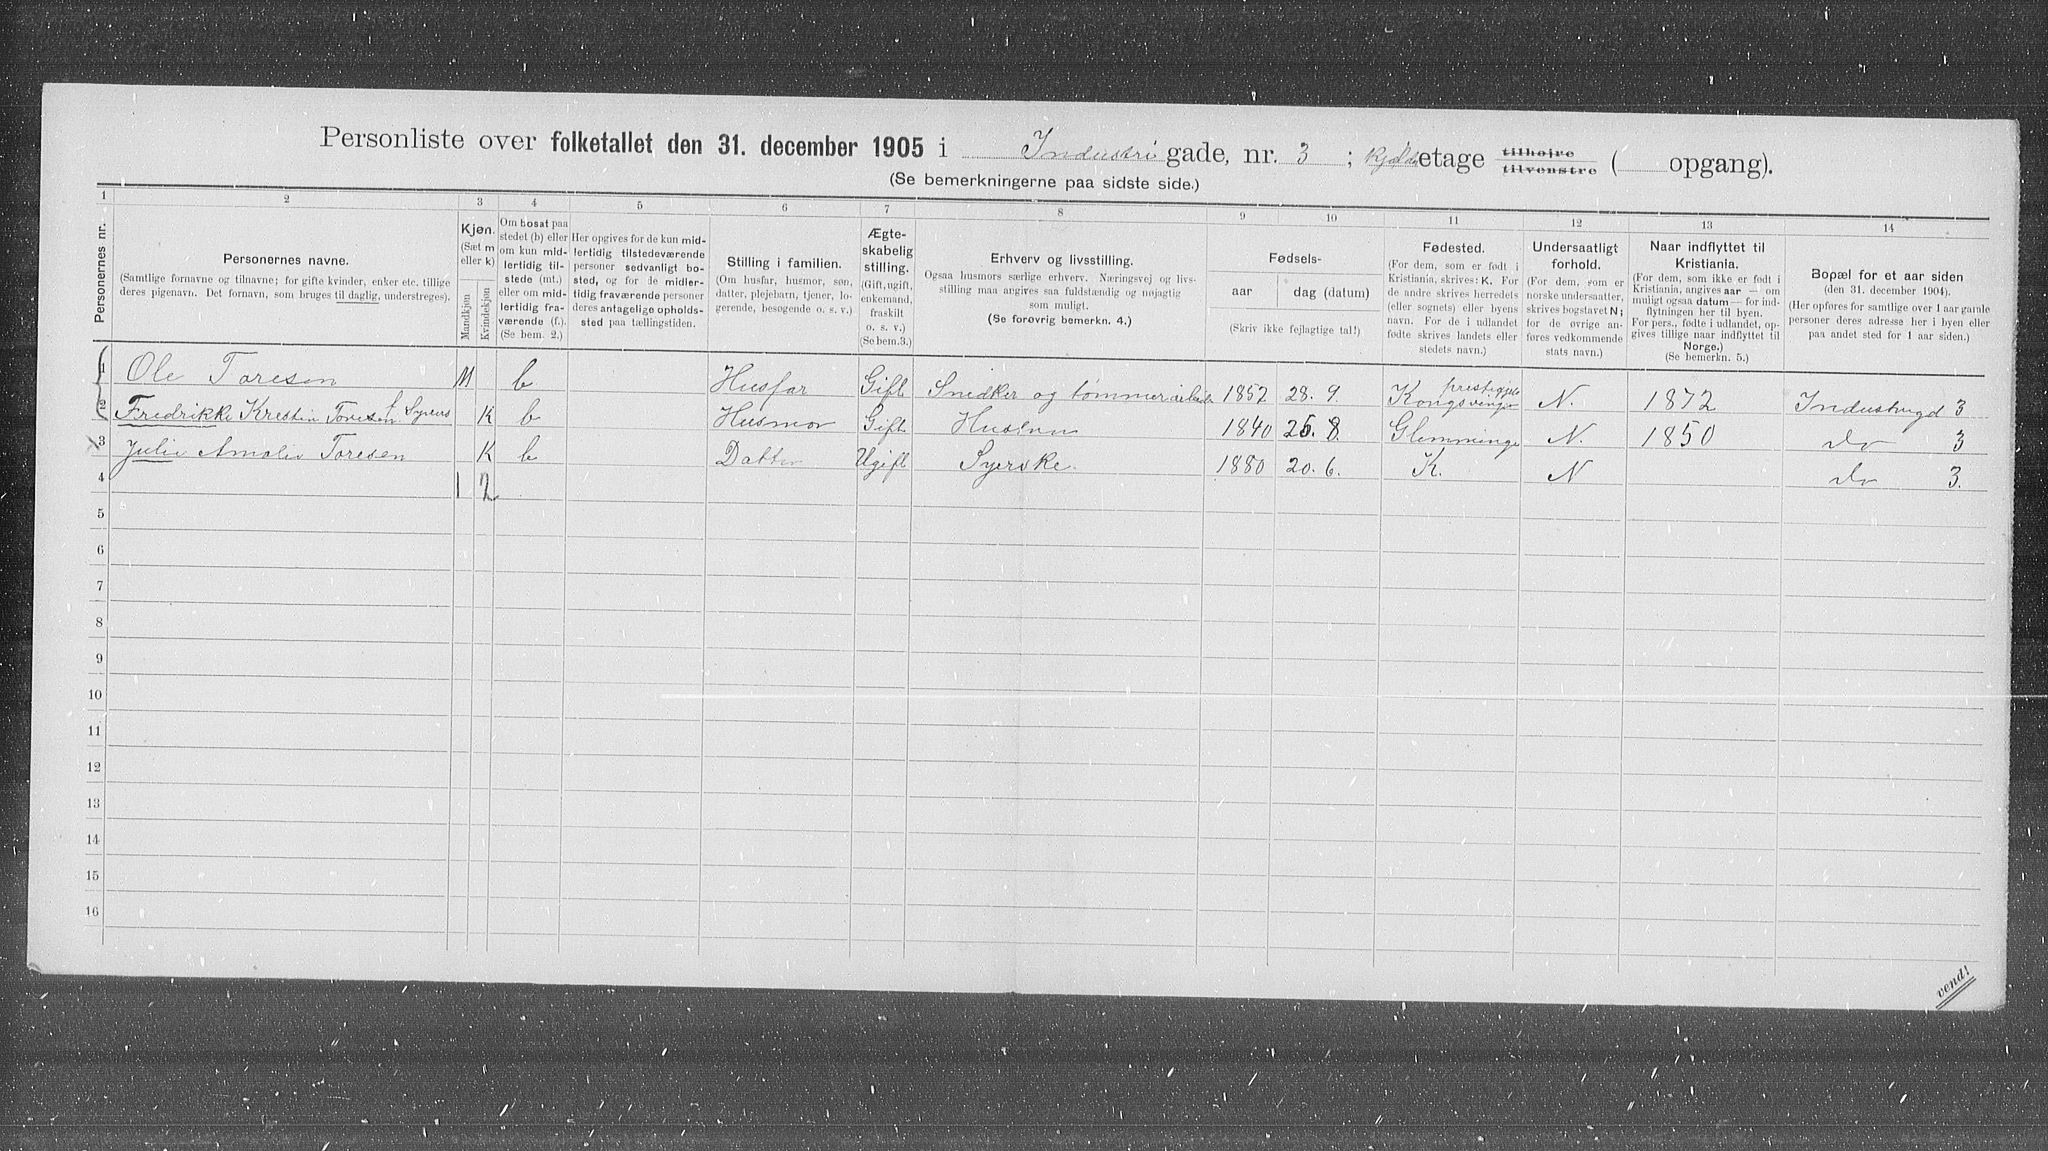 Personliste over folketallet den 31. december 1905 i Industri gade, nr. 3 ; Kjelder etage tilhøire tilvenstre ( opgang).
(Se bemerkningerne paa sidste side.)
1 2 3 4 5 6 7 8 9 10 11 12 13 14
Personernes nr.
Personernes navne.
(Samtlige fornavne og tilnavne; for gifte kvinder, enker etc. tillige
deres pigenavn. Det fornavn, som bruges til daglig, understreges).
Kjøn.
(Sæt m
eller k)
Mandkjøn
Kvindekjøn
Om bosat paa
stedet (b) eller
om kun mid-
lertidig til-
stede (mt.)
eller om mid-
lertidig fra-
værende (f.).
(Se bem. 2.)
Her opgives for de kun mid-
lertidig tilstedeværende
personer sedvanligt bo-
sted, og for de midler-
tidig fraværende personer
deres antagelige opholds-
sted paa tællingstiden.
Stilling i familien.
(Om husfar, husmor, søn,
datter, plejebarn, tjener, lo-
gerende, besøgende o. s. v.)
Ægte-
skabelig
stilling.
(Gift, ugift,
enkemand,
fraskilt
o. s. v.)
(Se bem.3.)
Erhverv og livsstilling.
Ogsaa husmors særlige erhverv. Næringsvej og livs-
stilling maa angives saa fuldstændig og nøjagtig
som muligt.
(Se forøvrig bemerkn. 4.)
Fødsels-
aar dag (datum)
(Skriv ikke fejlagtige tal!)
Fødested.
(For dem, som er født i
Kristiania, skrives: K. For
de andre skrives herredets
(eller sognets) eller byens
navn. For de i udlandet
fødte skrives landets eller
stedets navn.)
Undersaatligt
forhold.
(For dem, som er
norske undersaatter,
skrives bogstavet N;
for de øvrige an-
føres vedkommende
stats navn.)
Naar indflyttet til
Kristiania.
(For dem, som ikke er født i
Kristiania, angives aar — om
muligt ogsaa datum — for ind-
flytningen her til byen.
For pers., fødte i udlandet, op-
gives tillige naar indflyttet til
Norge.)
(Se bemerkn. 5.)
Bopæl for et aar siden
(den 31. december 1904).
(Her opføres for samtlige over 1 aar gamle
personer deres adresse her i byen eller
paa andet sted for 1 aar siden.)
1 Ole Toresen M b Husfar Gift Snedker og tømmerarbeide 1852 28. 9. Kongsvinger prestegjeld N. 1872 Industrigd 3
2 Fredrikke Krestin Toresen f. Syvers K b Husmor Gift Husmor 1840 25. 8. Glemminge N. 1850 Do 3
3 Julie Amalie Toresen K b Datter Ugift Syerske. 1880 20. 6. K. N Do 3.
4 1 2
5
6
7
8
9
10
11
12
13
14
15
16
vend!